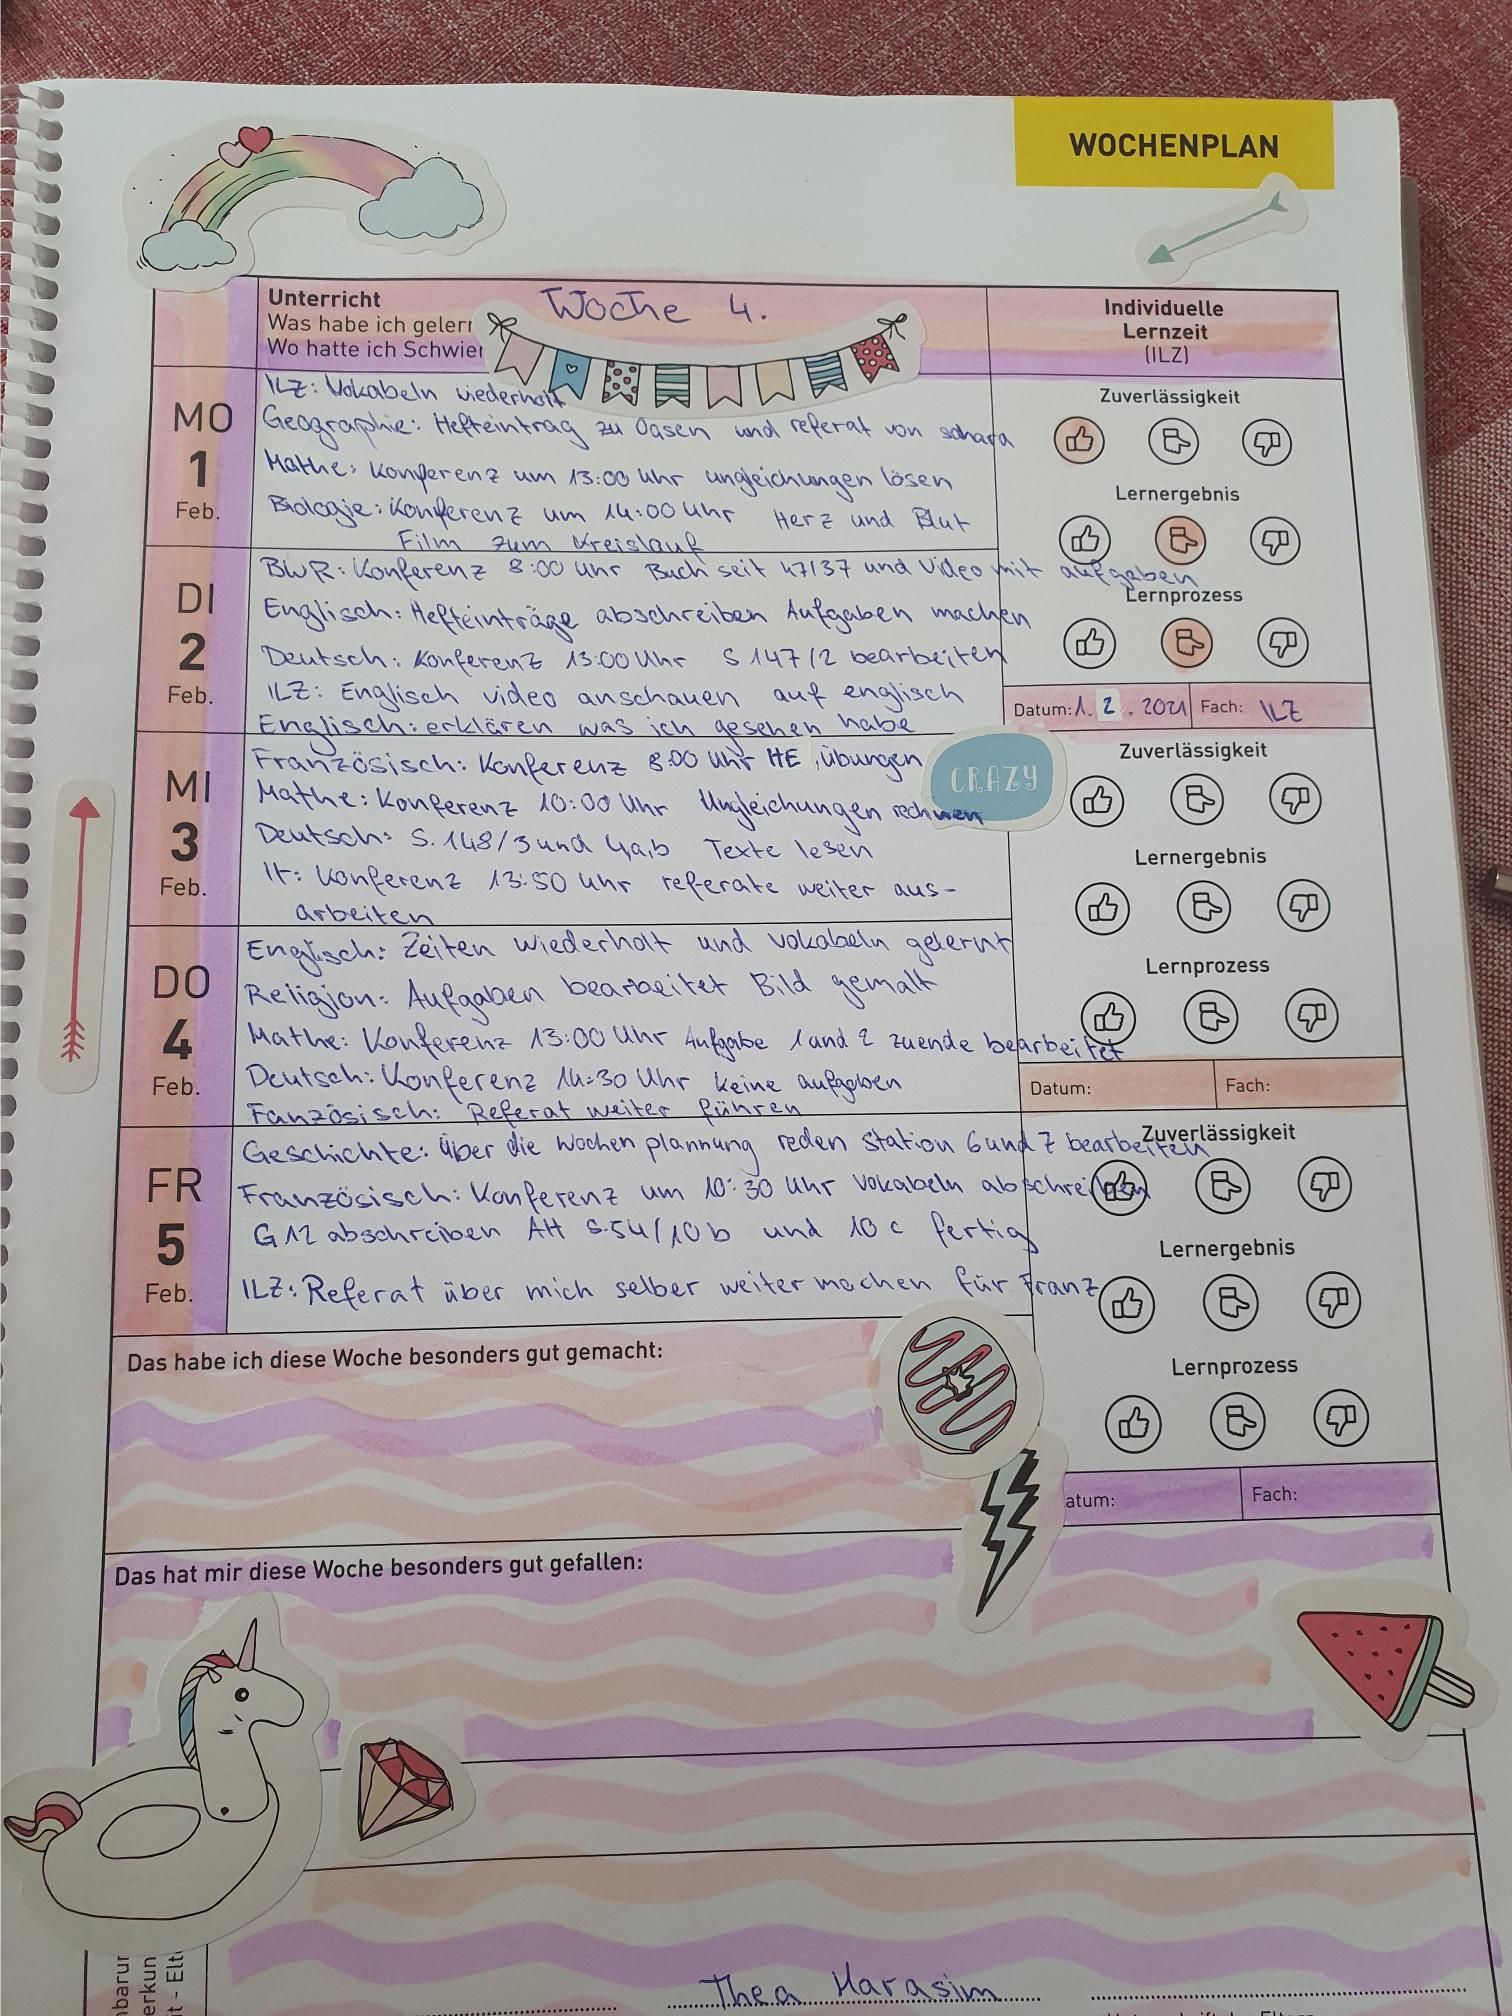 WOCHENPLAN
Unterricht
Woche 4.
Was habe ich gelern
Wo hatte ich Schwier
Individuelle
Lernzeit
(ILZ)
MO
1
Feb.
ILZ: Vokabeln wiederholt
Geographie: Hefteintrag zu Oasen und referat von sahara
Mathe: Konferenz um 13:00 Uhr ungleichungen lösen
Biologie: Konferenz um 14:00 Uhr Herz und Blut
Film zum Kreislauf
DI
2
Feb.
BWR: Konferenz 8:00 Uhr Buch seit 47/37 und Video mit aufgaben
Englisch: Hefteinträge abschreiben Aufgaben machen
Deutsch: Konferenz 13:00 Uhr S 147/2 bearbeiten
ILZ: Englisch video anschauen auf englisch
Englisch: erklären was ich gesehen habe
MI
3
Feb.
Französisch: Konferenz 8:00 Uhr HE, Übungen
Mathe: Konferenz 10:00 Uhr Ungleichungen rechnen
Deutsch: S. 148/3 und 4,a,b Texte lesen
It: Konferenz 13:50 Uhr referate weiter aus-
arbeiten
DO
4
Feb.
Englisch: Zeiten wiederholt und vokabeln gelernt
Religion: Aufgaben bearbeitet Bild gemalt
Mathe: Konferenz 13:00 Uhr Aufgabe 1 and 2 zuende bearbeitet
Deutsch: Konferenz 14:30 Uhr keine aufgaben
Fanzösisch: Referat weiter führen
FR
5
Feb.
Geschichte: Über die Wochenplannung reden Station 6 und 7 bearbeiten
Französisch: Konferenz um 10:30 Uhr Vokabeln abschreiben
G12 abschreiben AH S.54/10b und 10c fertig
ILZ: Referat über mich selber weiter machen für Franz
Zuverlässigkeit
Lernergebnis
Lernprozess
Datum: 1. 2. 2021 Fach: ILZ
CRAZY
Zuverlässigkeit
Lernergebnis
Lernprozess
Datum: Fach:
Zuverlässigkeit
Lernergebnis
Lernprozess
atum: Fach:
Das habe ich diese Woche besonders gut gemacht:
Das hat mir diese Woche besonders gut gefallen:
nbarun
erkun
t - Elte
Thea Harasim